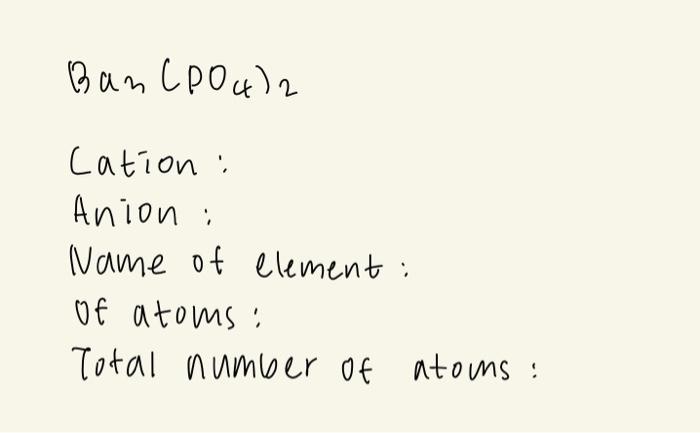 Ban (PO4)2
Cation :
Anion :
Name of element :
Of atoms :
Total number of atoms :